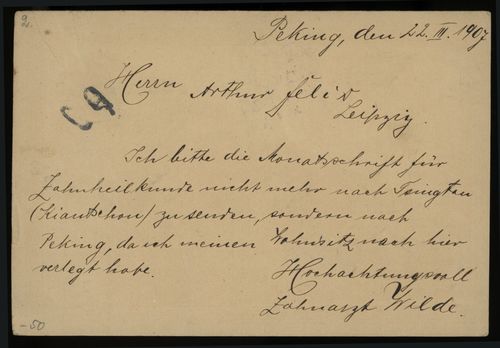 2.
Peking, den 22. III. 1907
Herrn
Arthur Felix
Leipzig.
Ich bitte die Monatsschrift für
Zahnheilkunde nicht mehr nach Tsingtau
(Kiautschou) zu senden, sondern nach
Peking, da ich meinen Wohnsitz nach hier
verlegt habe.
Hochachtungsvoll
Zahnarzt Wilde.
-50